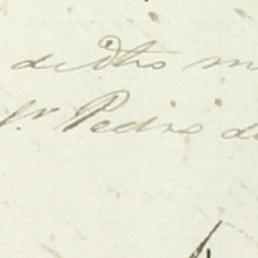 de dto m
Sr. Pedro de